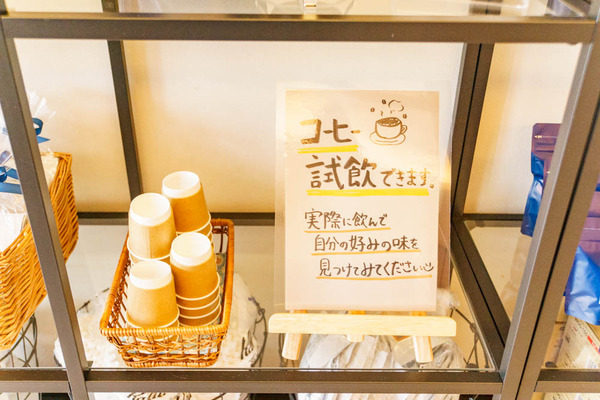 コーヒー
試飲できます。
実際に飲んで
自分の好みの味を
見つけてみてください